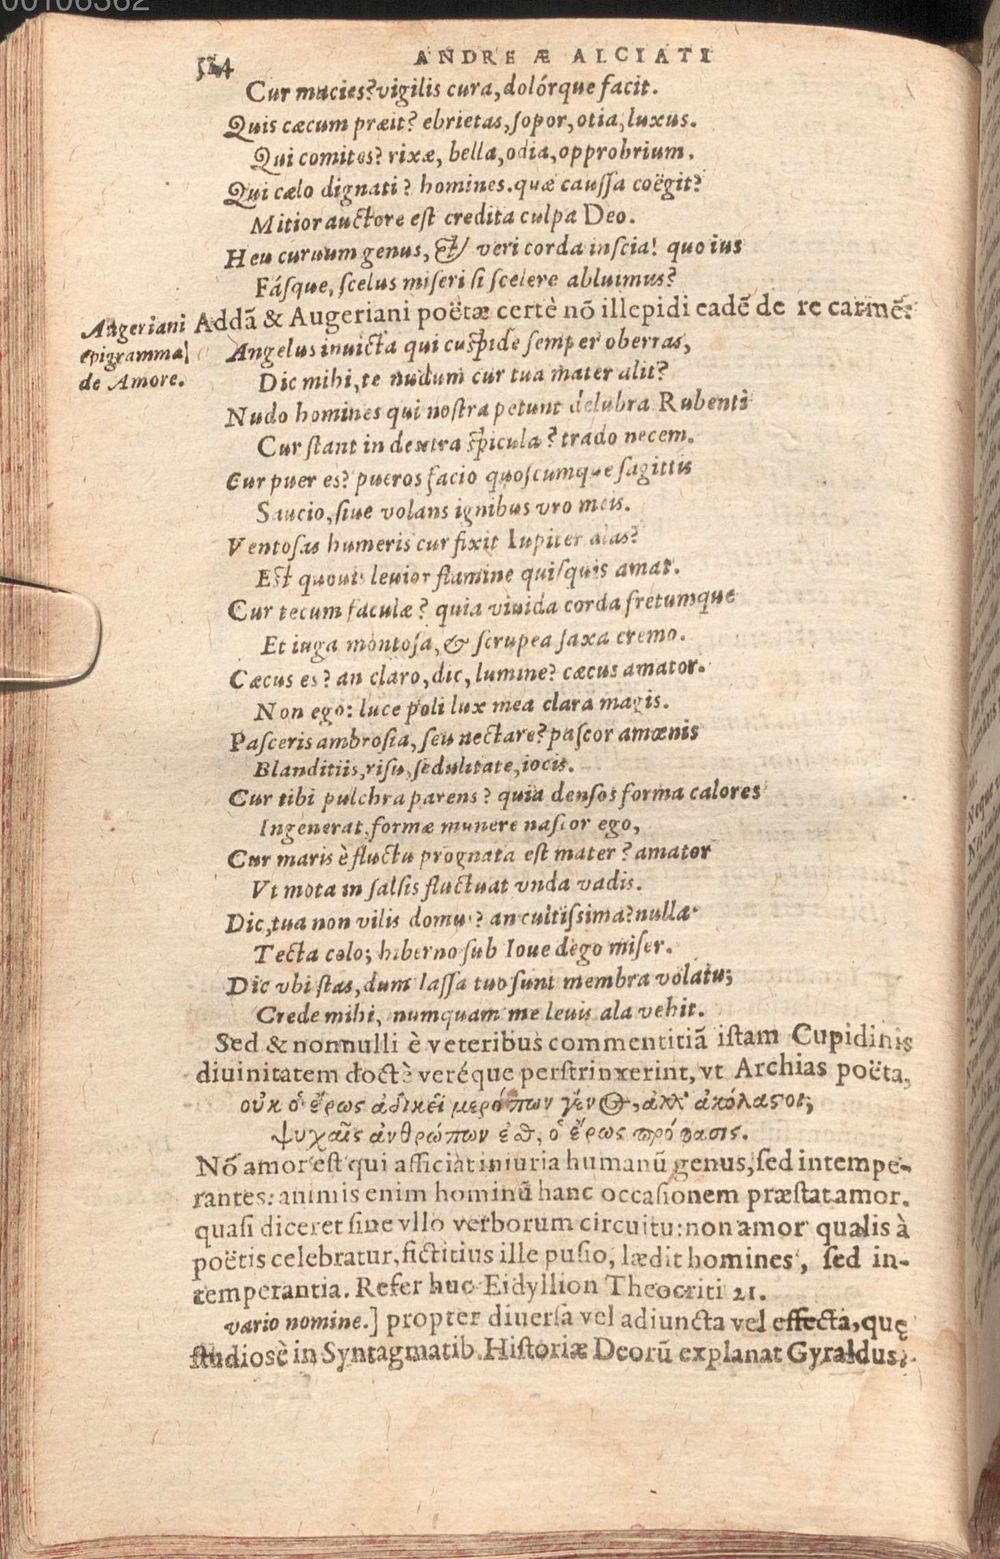 00106362
524
ANDREÆ ALCIATI
Cur macies? vigilis cura, dolórque facit.
Quis cæcum præit? ebrietas, sopor, otia, luxus.
Qui comites? rixæ, bella, odia, opprobrium.
Qui cælo dignati? homines. quæ caussa coëgit?
Mitior auctore est credita culpa Deo.
Heu curuum genus, & veri corda inscia! quo ius
Fásque, scelus miseri si scelere abluimus?
Addã & Augeriani poëtæ certè nõ illepidi eadẽ de re carmẽ:
Augeriani
epigramma
de Amore.
Angelus inuicta qui cuspide semper oberras,
Dic mihi, te nudum cur tua mater alit?
Nudo homines qui nostra petunt delubra Rubenti
Cur stant in dextra spicula? trado necem.
Cur puer es? pueros facio quoscumque sagittis
Saucio, siue volans ignibus vro meis.
Ventosas humeris cur fixit Iupiter alas?
Est quouis leuior flamine quisquis amat.
Cur tecum faculæ? quia viuida corda fretumque
Et iuga montosa, & scrupea saxa cremo.
Cæcus es? an claro, dic, lumine? cæcus amator.
Non ego: luce poli lux mea clara magis.
Pasceris ambrosia, seu nectare? pascor amœnis
Blanditiis, risu, sedulitate, iocis.
Cur tibi pulchra parens? quia densos forma calores
Ingenerat, formæ munere nascor ego,
Cur maris è fluctu prognata est mater? amator
Vt mota in salsis fluctuat vnda vadis.
Dic, tua non vilis domus? an cultissima? nulla
Tecta colo; hiberno sub Ioue dego miser.
Dic vbi stas, dum lassa tuo sunt membra volatu;
Crede mihi, numquam me leuis ala vehit.
Sed & nonnulli è veteribus commentitiã istam Cupidinis
diuinitatem doctè veréque perstrinxerint, vt Archias poëta,
οὐκ ὁ ἔρως ἀδικεῖ μερόπων γένος, ἀλλ' ἀκόλαστοι,
ψυχαῖς ἀνθρώπων ἐσθ', ὁ ἔρως πρόφασις.
Nõ amor est qui afficiat iniuria humanũ genus, sed intempe-
rantes: animis enim hominũ hanc occasionem præstat amor.
quasi diceret sine vllo verborum circuitu: non amor qualis à
poëtis celebratur, fictitius ille pusio, lædit homines, sed in-
temperantia. Refer huc Eidyllion Theocriti 21.
vario nomine.] propter diuersa vel adiuncta vel effecta, quę
studiosè in Syntagmatib. Historiæ Deorũ explanat Gyraldus,